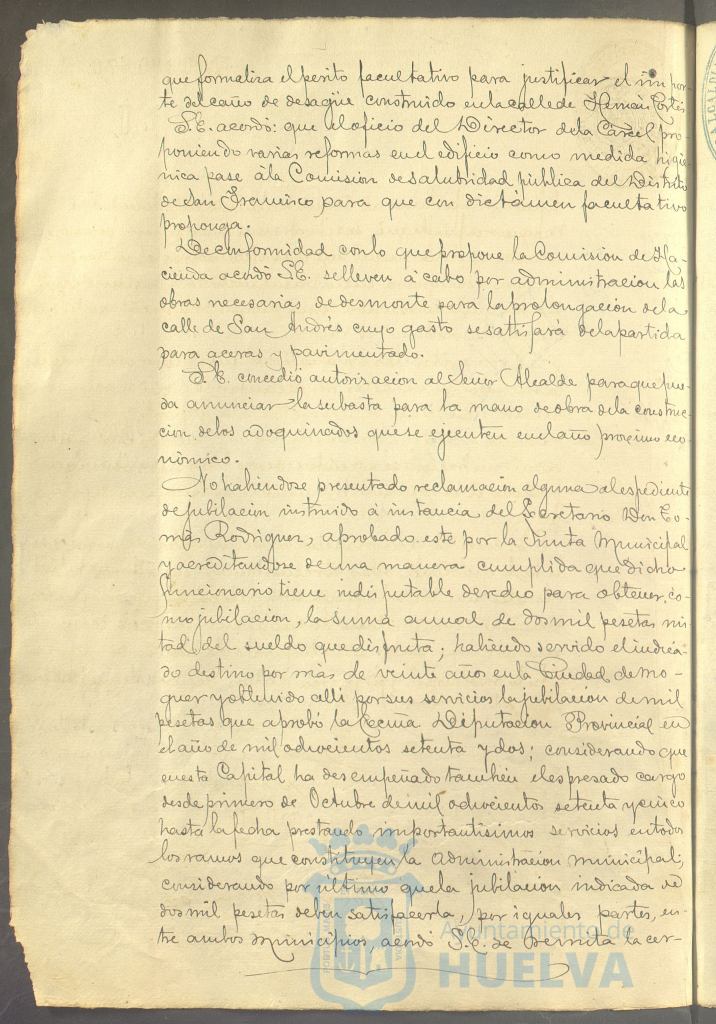 que formaliza el perito facultativo para justificar el impor-
te del caño de desagüe construido en la calle de Hernán Cortés
S.E. acordó: que el oficio del Director de la Carcel pro-
poniendo varias reformas en el edificio como medida higie-
nica pase á la Comisión de salubridad pública del Distrito
de San Francisco para que con dictámen facultativo
proponga.
De conformidad con lo que propone la Comision de Ha-
cienda acordó S.E. se lleven á cabo por administracion las
obras necesarias de desmonte para la prolongación de la
calle de San Andrés cuyo gasto se satisfará de la partida
para aceras y pavimentado.
S.E. concedió autorizacion al Señor Alcalde para que pue-
da anunciar la subasta para la mano de obra de la construc-
cion de los adoquinados que se ejecuten en el año proximo eco-
nómico.
No habiendose presentado reclamacion alguna al espediente
de jubilacion instruido á instancia del Secretario Don To-
más Rodriguez, aprobado este por la Junta Municipal
y acreditandose de una manera cumplida que dicho
funcionario tiene indisputable derecho para obtener, co-
mo jubilacion, la suma anual de dos mil pesetas mi-
tad del sueldo que disfruta; habiendo servido el indica-
do destino por más de veinte años en la Ciudad de Mo-
guer y obtenido alli por sus servicios la jubilación de mil
pesetas que aprobó la Excma Diputacion Provincial en
el año de mil ochocientos setenta y dos; considerando que
en esta Capital ha desempeñado tambien el espresado cargo
desde primero de Octubre de mil ochocientos setenta y cinco
hasta la fecha prestando importantisimos servicios en todos
los ramos que constituyen la administracion municipal;
considerando por último que la jubilacion indicada de
dos mil pesetas deben satisfacerla, por iguales partes, en-
tre ambos Municipios, acordó S.E. se remita la cer-
Ayuntamiento de
HUELVA